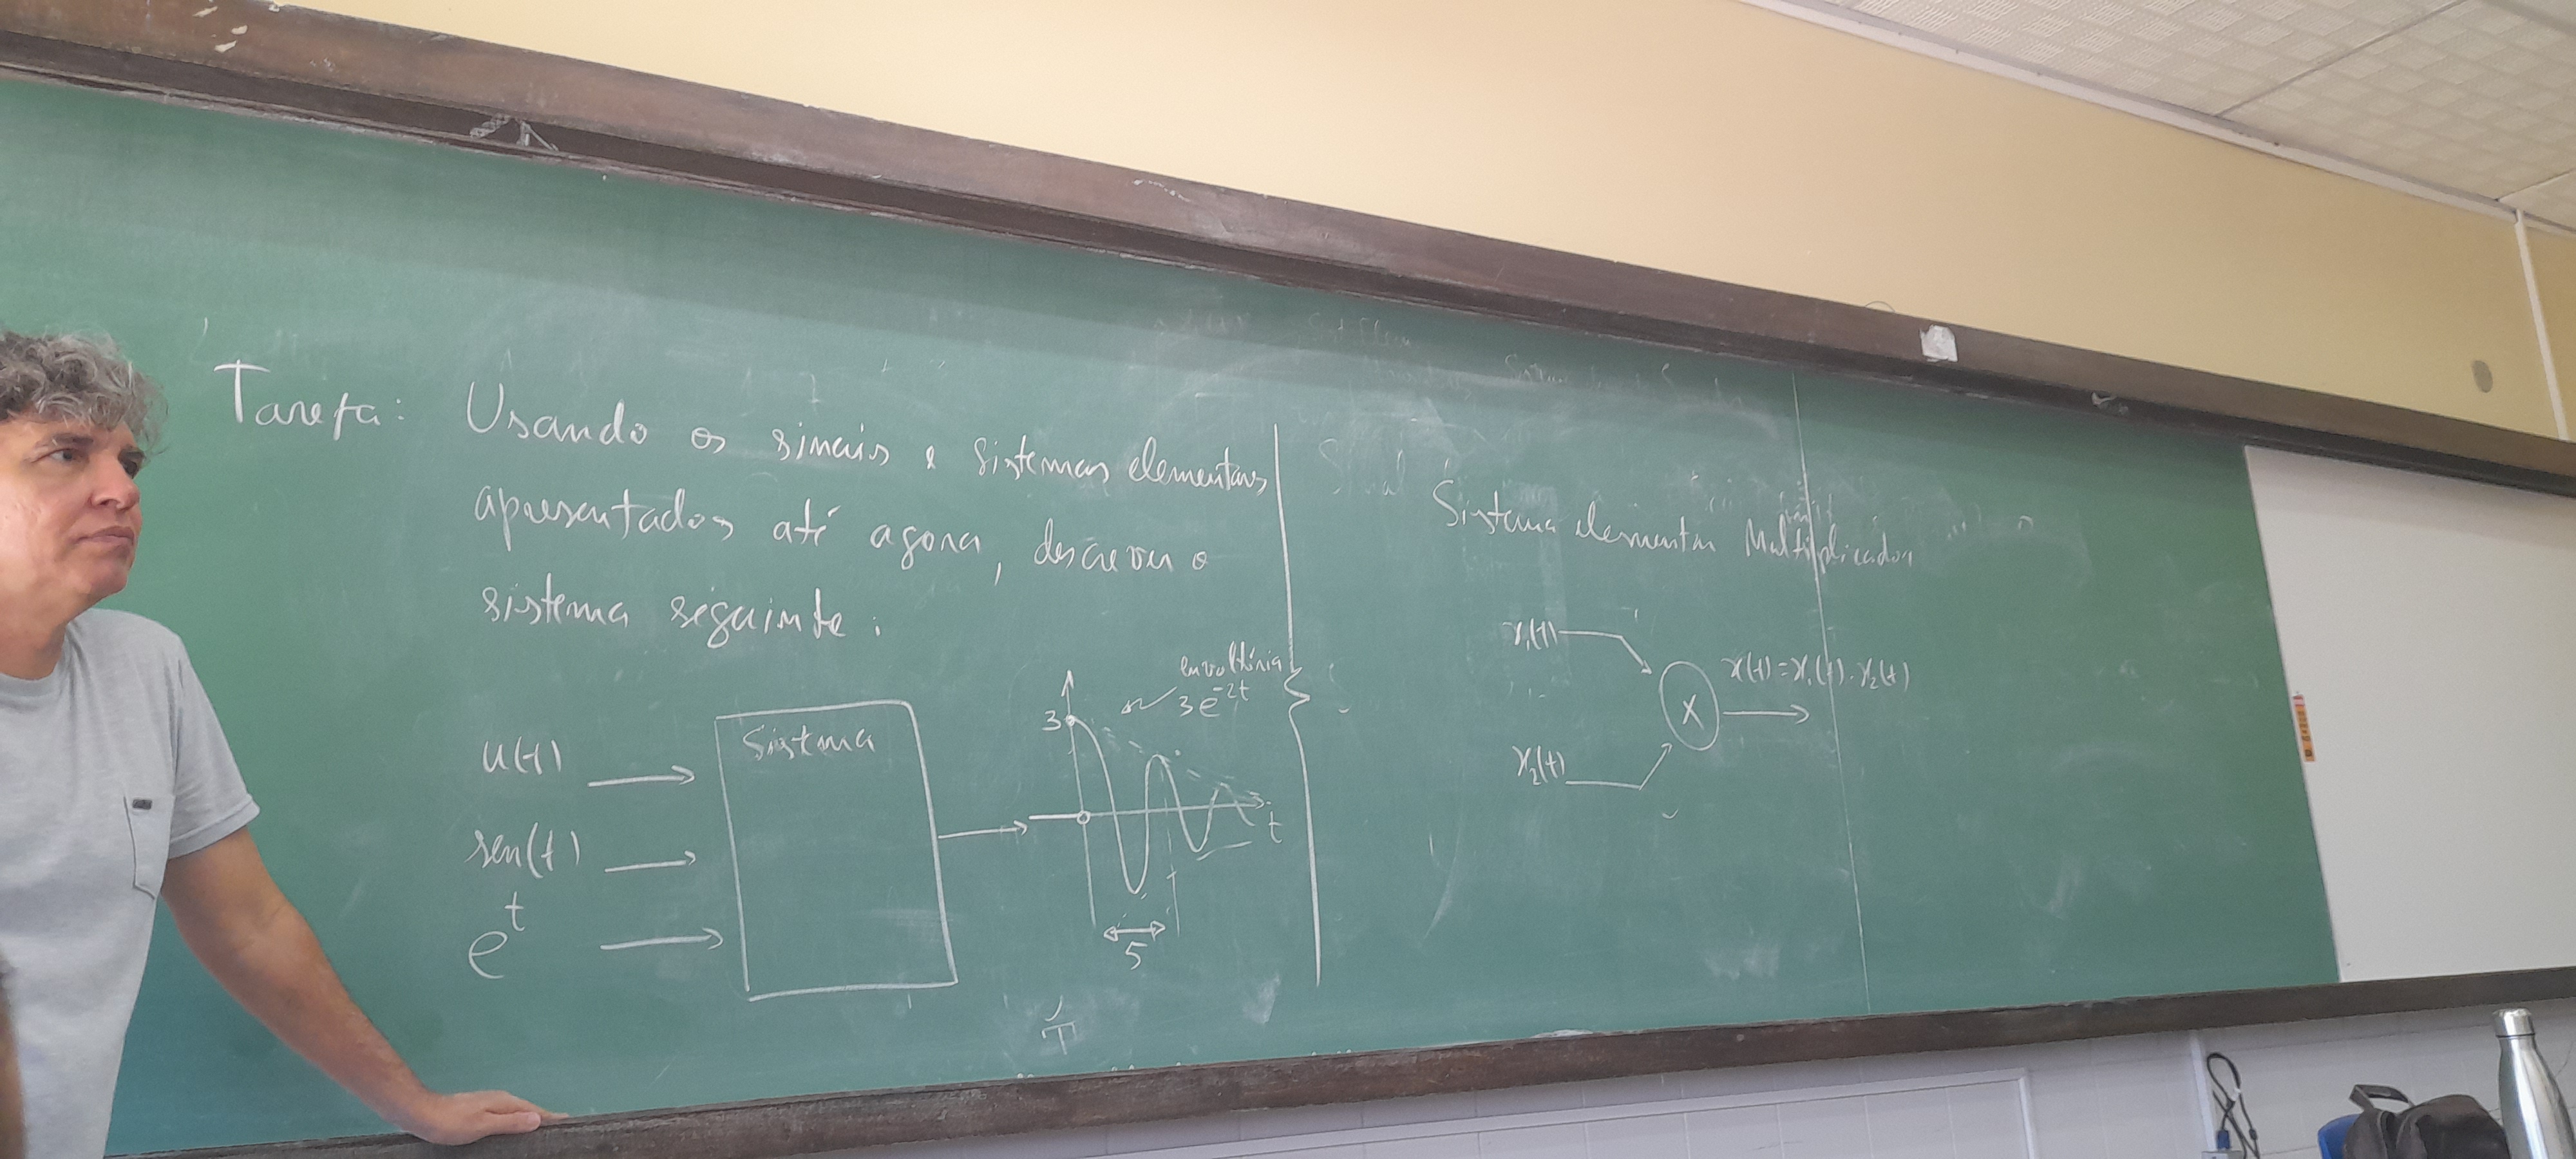 Tarefa: Usando os sinais e sistemas elementares
apresentados até agora, descreva o
sistema seguinte:
u(t)
sen(t)
e^t
Sistema
3
envoltória
3e^-2t
t
5
Sistema elementar Multiplicador
x₁(t)
x₂(t)
X
x(t)=x₁(t).x₂(t)